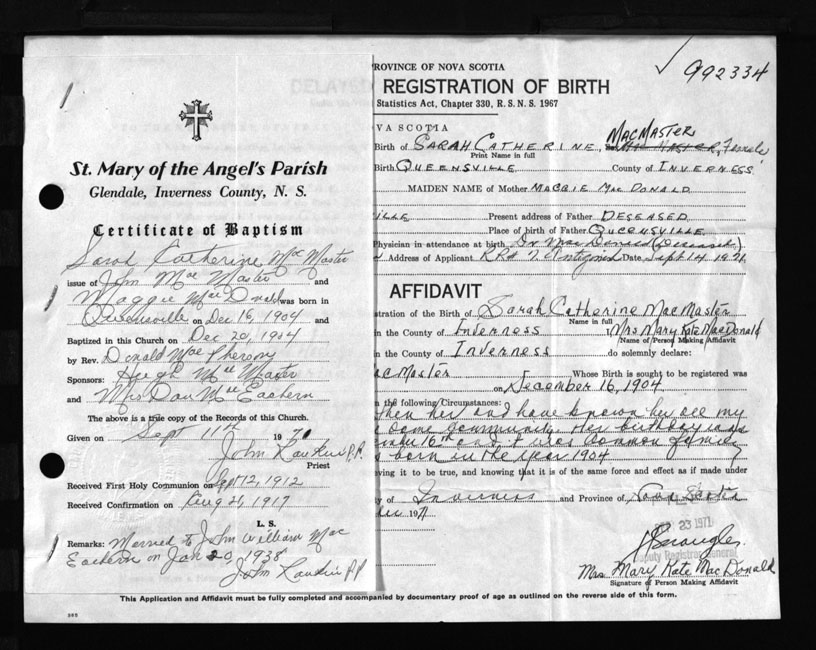 St. Mary of the Angel's Parish
Glendale, Inverness County, N. S.
Certificate of Baptism
Sarah Catherine MacMaster
issue of John MacMaster and
Maggie MacDonald was born in
Queensville on Dec 16, 1904 and
Baptized in this Church on Dec 20, 1904
by Rev. Donald MacPherson
Sponsors: Hugh MacMaster
and Mrs Dan MacEachern
The above is a true copy of the Records of this Church.
Given on Sept 11th 1971
John Rankin P.P.
Priest
Received First Holy Communion on Sept 12, 1912
Received Confirmation on Aug 21, 1917
L. S.
Remarks: Married to John William Mac
Eachern on Jan 20, 1938
John Rankin P.P.
992334
PROVINCE OF NOVA SCOTIA
DELAYED REGISTRATION OF BIRTH
Statistics Act, Chapter 330, R. S. N. S. 1967
VA SCOTIA
MACMASTER
Birth of SARAH CATHERINE, Female
Print Name in full
Birth QUEENSVILLE County of INVERNESS
MAIDEN NAME of Mother MAGGIE MACDONALD
ILLE Present address of Father DESEASED
Place of birth of Father QUEENSVILLE
Physician in attendance at birth Dr MacDonald (Deceased)
Address of Applicant RR# 7, Antigonish Date Sept 14 1971
AFFIDAVIT
stration of the Birth of Sarah Catherine MacMaster
Name in full
in the County of Inverness, Mrs Mary Kate MacDonald
Name of Person Making Affidavit
in the County of Inverness do solemnly declare:
acMaster Whose Birth is sought to be registered was
on December 16, 1904
n the following Circumstances:
then her and have known her all my
same community. Her birthday is on
16th and it was common family
s born in the year 1904
ving it to be true, and knowing that it is of the same force and effect as if made under
y of Inverness and Province of Nova Scotia
1971
23 1971
Deputy Registrar General
Mrs Mary Kate MacDonald
Signature of Person Making Affidavit
This Application and Affidavit must be fully completed and accompanied by documentary proof of age as outlined on the reverse side of this form.